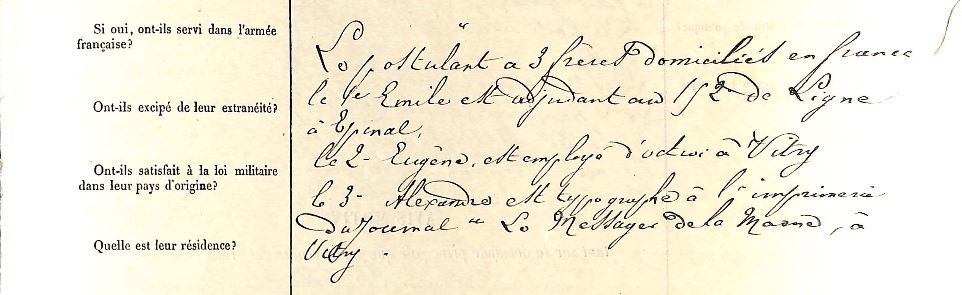 Si oui, ont-ils servi dans l'armée
française?
Ont-ils excipé de leur extranéité?
Ont-ils satisfait à la loi militaire
dans leur pays d'origine?
Quelle est leur résidence?
"
Le postulant a 3 frères domiciliés en france
le 1er Emile est adjudant au 152e de Ligne
à Epinal,
le 2e Eugène, est employé d'octroi à Vitry
le 3e Alexandre est typographe à l'imprimerie
du Journal "Le Messager de la Marne, à
Vitry.